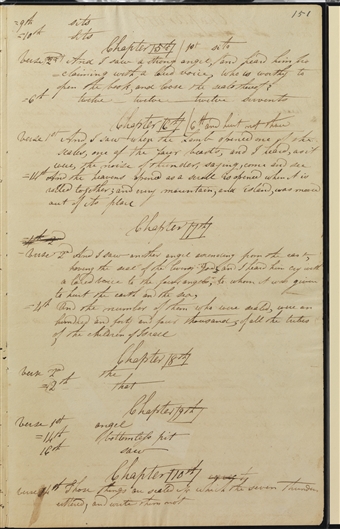 151
=9th ditto
=10th ditto
Chapter 5th / 1st ditto
Verse 2d And I saw a strong angel, and heard him pro
=claiming with a loud voice, who is worthy to
open the book, and loose the seals thereof?
=6th twelve twelve twelve servants
Chapter 6th / 6th and hurt not thou
Verse 1st And I saw when the Lamb opened one of the
seals, one of the four beasts, and I heard, as it
were, the noise of thunder, saying, come and see
=14th And the heavens opened as a scroll is opened when it is
rolled together; and every mountain, and island, was moved
out of its place
Chapter 7th
Verse 2d And I saw another angel ascending from the east,
having the seal of the living God; and I heard him cry with
a loud voice to the four angels, to whom it was given
to hurt the earth and the sea,
=4th And the number of them who were sealed, were an
hundred and forty and four thousand, of all the tribes
of the children of Israel
Chapter 8th
Verse 2d the
=12th that
Chapter 9th
Verse 1st angel
=14th bottomless pit
16th saw
Chapter 10th
Verse 4th Those things are sealed up which the seven thunders
uttered, and write them not